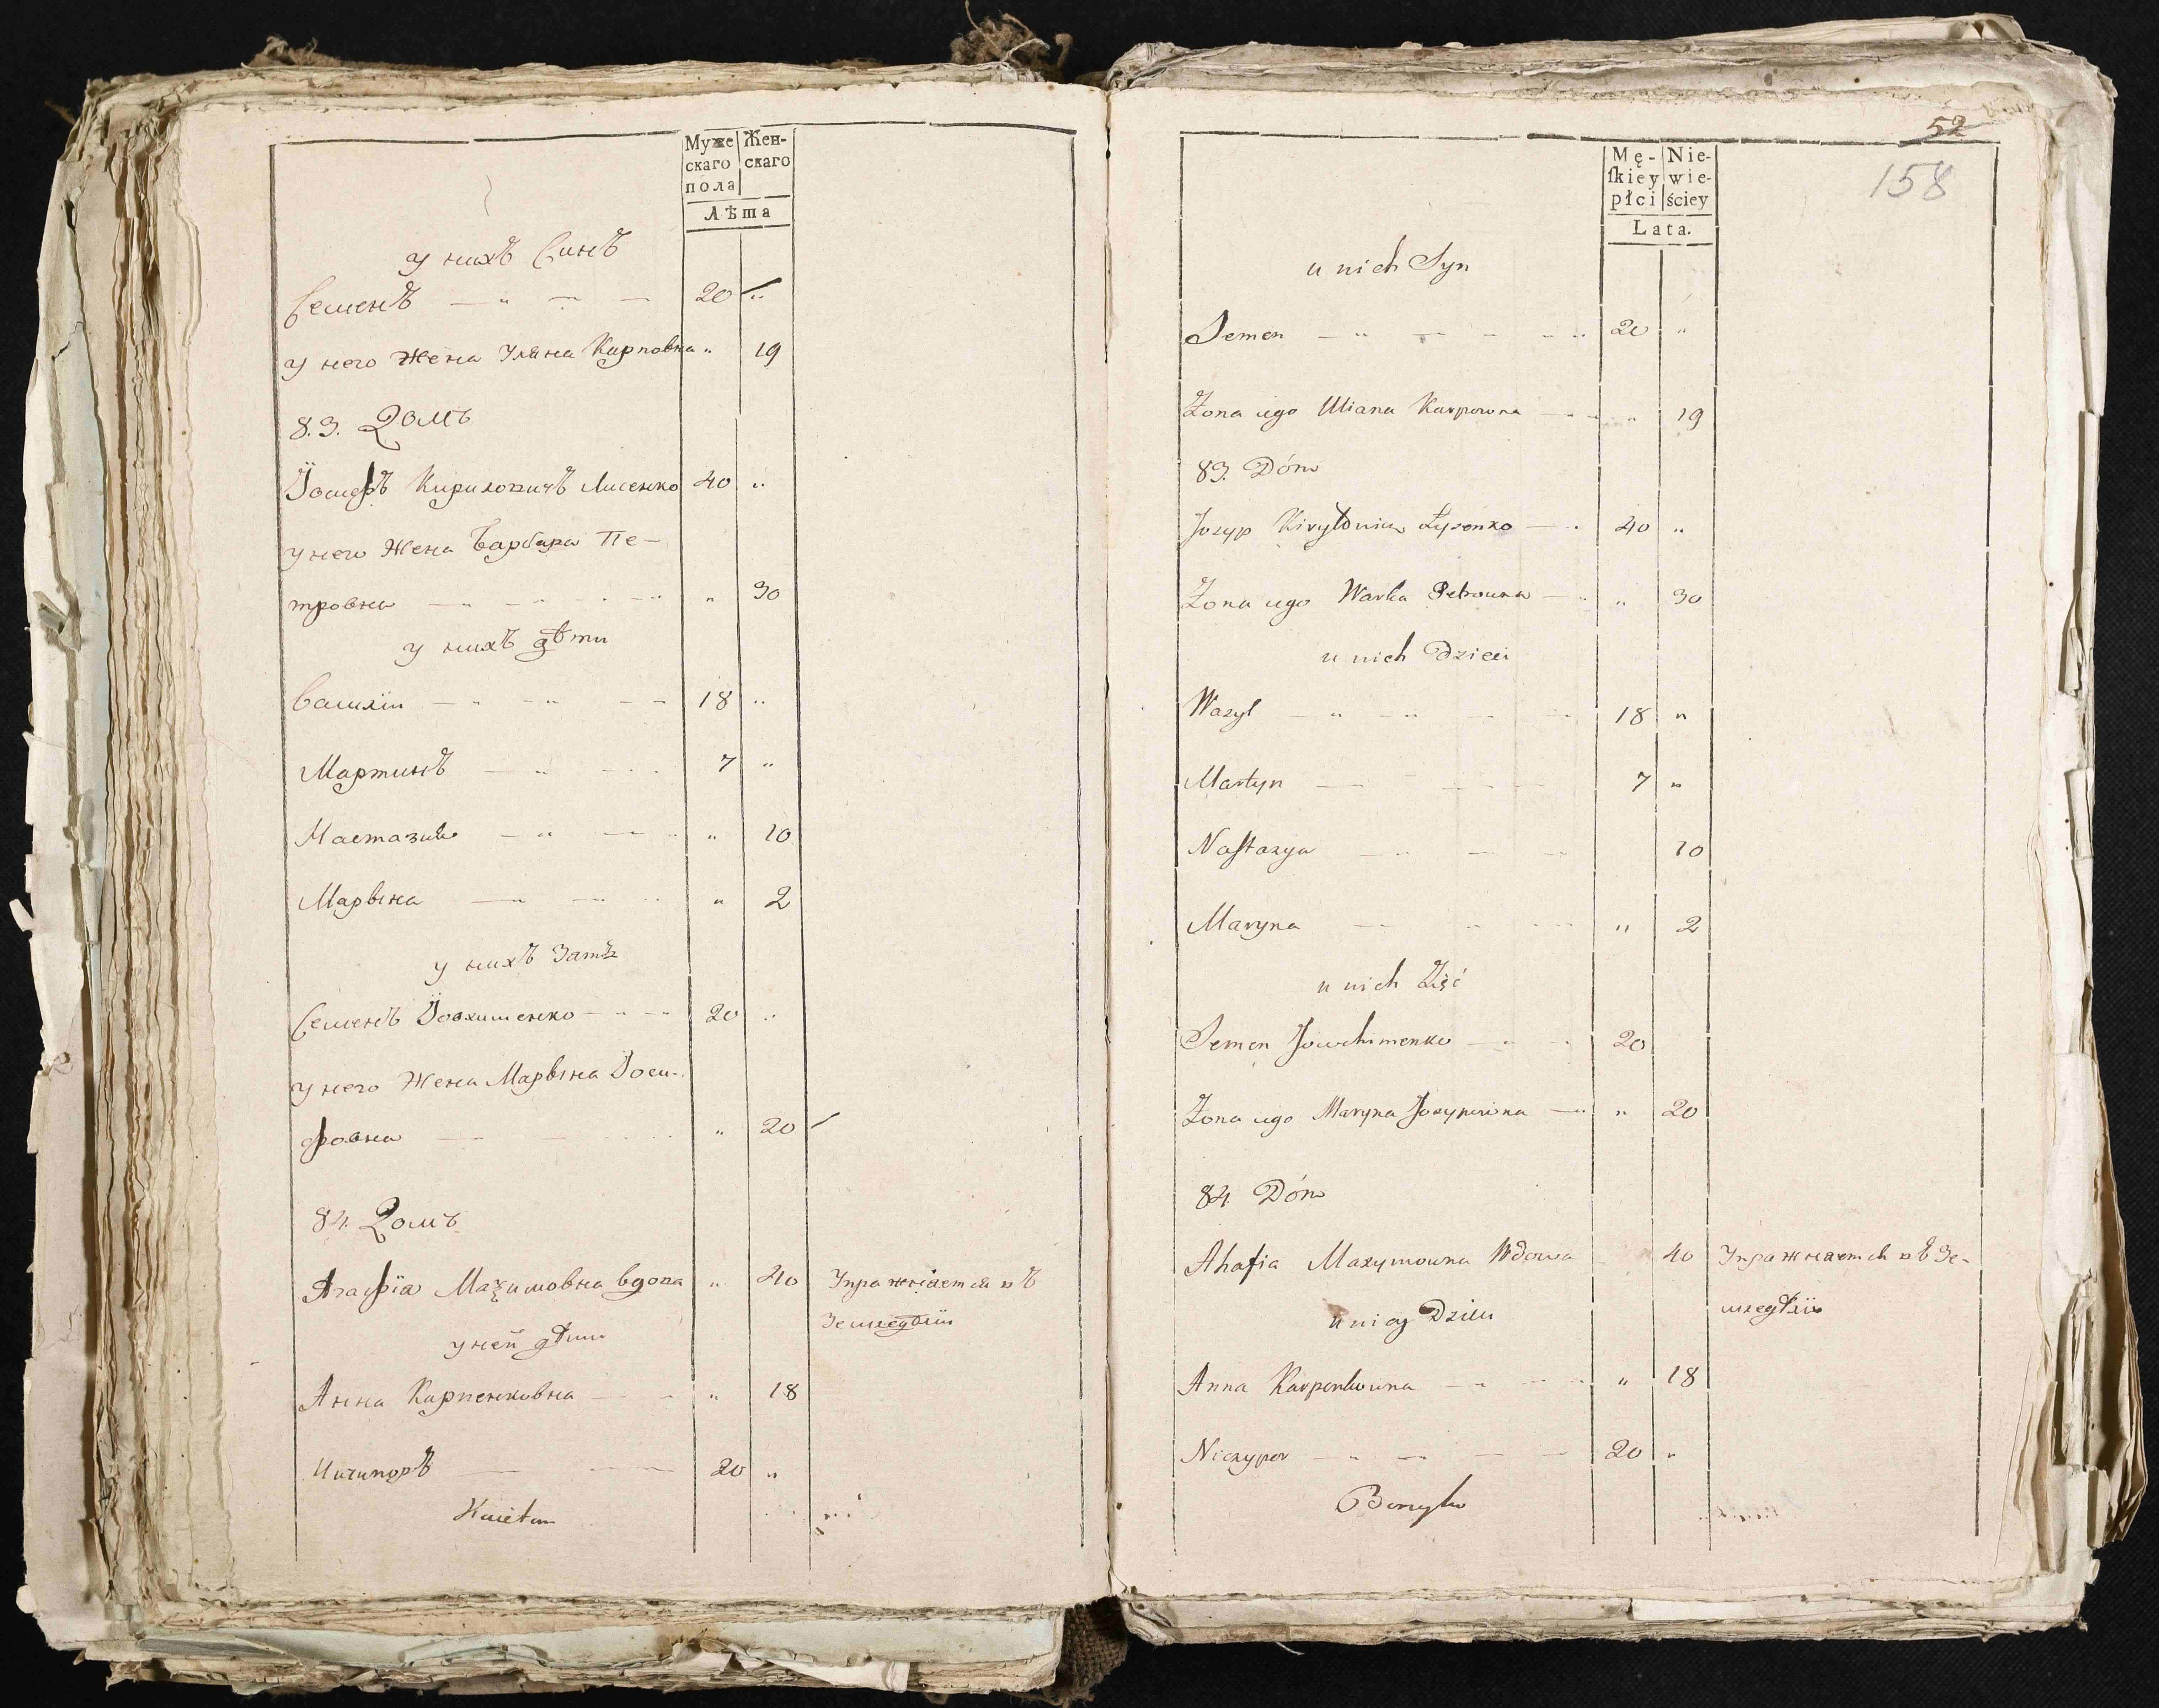 Муже Жен-
скаго скаго
пола
Лѣта
у нихъ Синъ
Семенъ — „ — — 20 „
у него Жена Уляна Карповна „ 19
83. Домъ
Іосифъ Кириловичъ Лисенко 40 „
у него Жена Варвара Пе-
тровна „ 30
у нихъ дѣти
Василіи 18 „
Мартинъ 7 „
Настазия „ 10
Марына „ 2
у нихъ Зать
Семенъ Іовхименко 20 „
у него Жена Марына Іоси-
фовна „ 20
84. Домъ
Агафія Маѯимовна вдова „ 40 Упражняется въ
Земледѣліи
у ней дѣти
Анна Карпенковна „ 18
Ничипоръ 20 „
52
158
Mę- Nie-
ſkiey wie-
płci ściey
Lata.
u nich Syn
Semen 20 „
Żona iego Uliana Karpowna „ 19
83. Dóm
Jozyp Kiryłowicz Łysenko 40 „
Żona iego Warka Petrowna „ 30
u nich Dzieci
Wazyl 18 „
Martyn 7 „
Naſtazya 10
Maryna „ 2
u nich Zięć
Semen Jowchimenko 20
Żona iego Maryna Jozypowna „ 20
84. Dóm
Ahafia Maxymowna Wdowa 40 Упражняется въ Зе-
мледѣліи
u niey Dzieci
Anna Karpenkowna „ 18
Niczypor 20 „